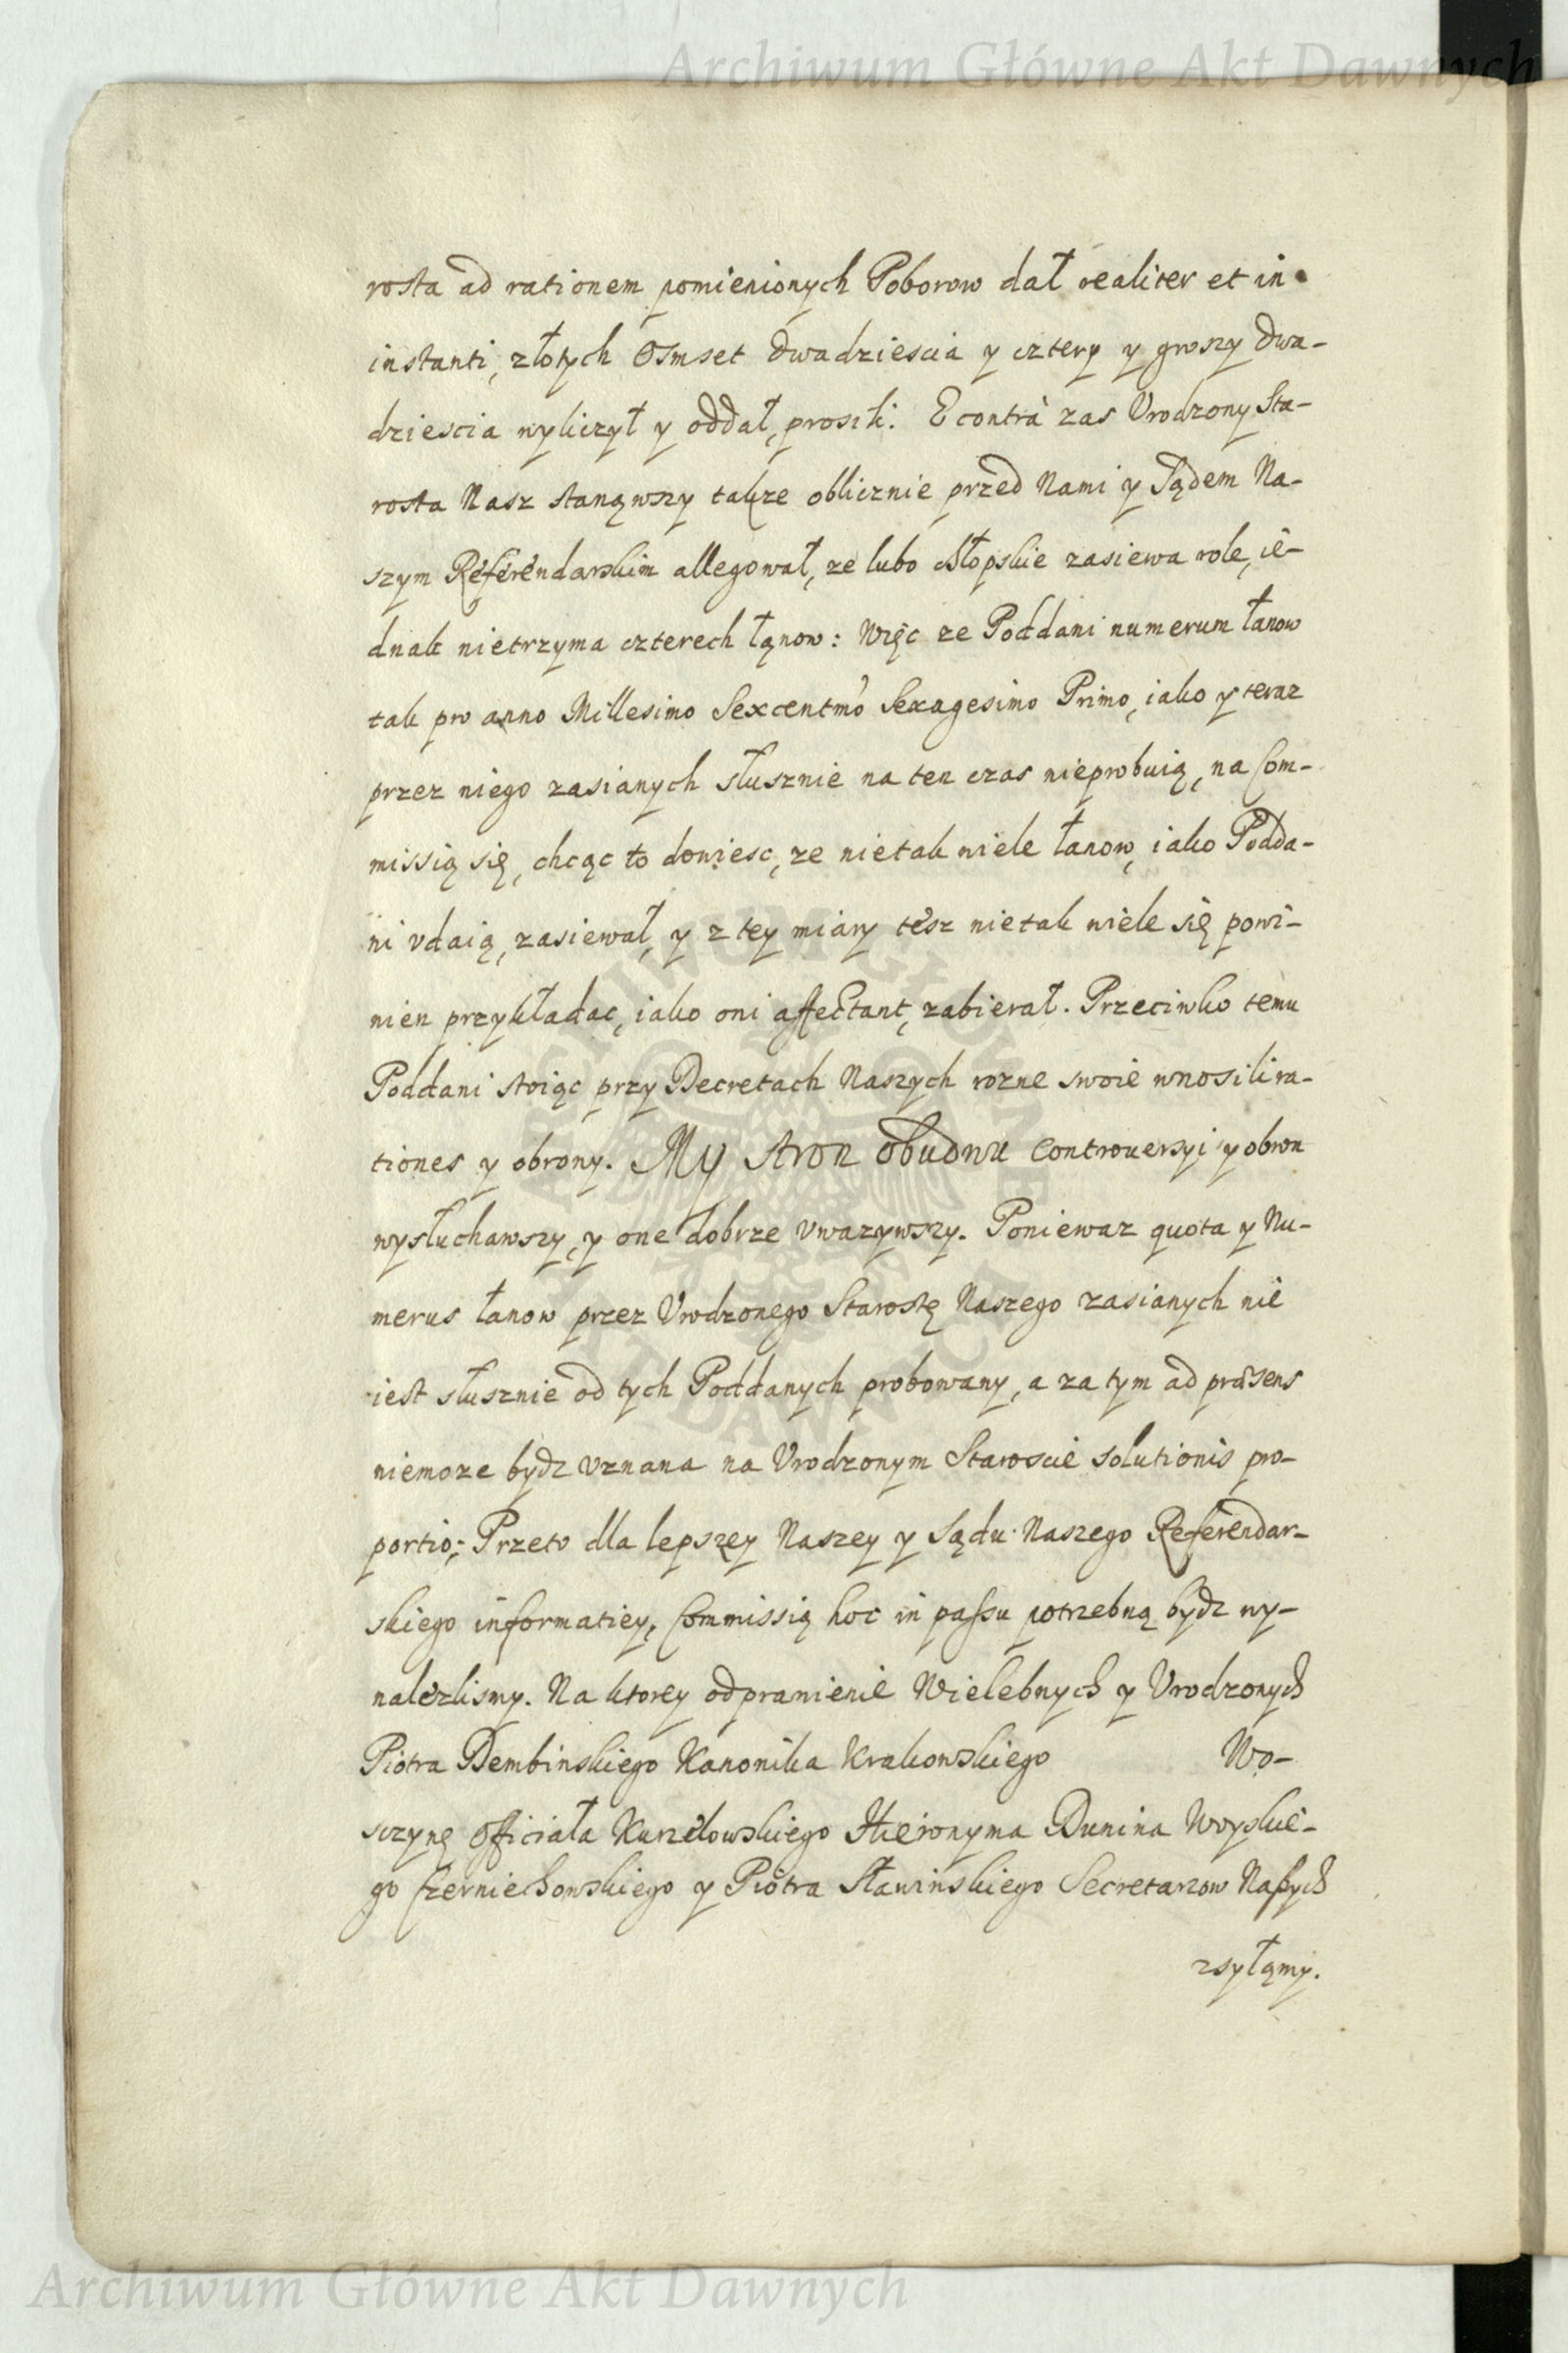 Archiwum Główne Akt Dawnych
rosta ad rationem pomienionych Poborow dał realiter et in
instanti, złotych Osmset dwadziescia y cztery y groszy dwa-
dziescia wyliczył y oddał, prosili. E contrà zas Vrodzony Sta-
rosta Nasz stanąwszy takze oblicznie przed Nami y Sądem Na-
szym Referendarskim allegował, ze lubo chłopskie zasiewa role, ie-
dnak nietrzyma czterech łąnow: Więc ze Poddani numerum łanow
tak pro anno Millesimo Sexcentmo Sexagesimo Primo, iako y teraz
przez niego zasianych słusznie na ten czas nieprobuią, na Com-
missią się, chcąc to dowiesc, ze nietak wiele łanow, iako Podda-
ni vdaią, zasiewał, y z tey miary tesz nietak wiele się powi-
nien przykładac, iako oni affectant, zabierał. Przeciwko temu
Poddani stoiąc przy Decretach Naszych rozne swoie wnosili ra-
tiones y obrony. My stron obudwu controuersyi y obron
wysłuchawszy, y one dobrze vwazywszy. Poniewaz quota y Nu-
merus łanow przez Vrodzonego Starostę Naszego zasianych nie
iest słusznie od tych Poddanych probowany, a za tym ad præsens
niemoze bydz vznana na Vrodzonym Staroscie solutionis pro-
portio; Przeto dla lepszey Naszey y Sądu Naszego Referendar-
skiego informatiey, Commissią hoc in passu potrzebną bydz wy-
nalezlismy. Na ktorey odprawienie Wielebnych y Vrodzonych
Piotra Dembinskiego Kanonika Krakowskiego Wo-
sczynę Officiała Kurzelowskiego Hieronyma Dunina Woyskie-
go Czerniechowskiego y Piotra Sławinskiego Secretarzow Naszych
zsyłąmy.
Archiwum Główne Akt Dawnych